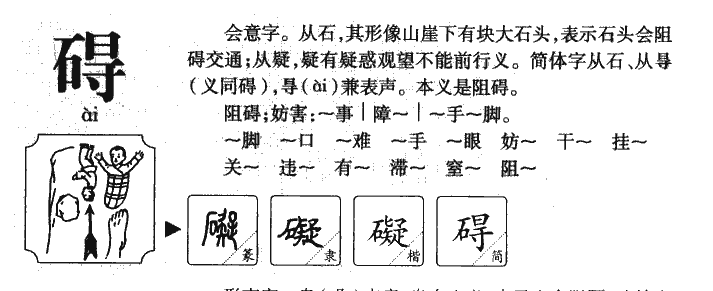 碍
ài
会意字。从石,其形像山崖下有块大石头,表示石头会阻
碍交通;从疑,疑有疑惑观望不能前行义。简体字从石、从㝵
(义同碍),㝵(ài)兼表声。本义是阻碍。
阻碍;妨害:～事｜障～｜～手～脚。
～脚 ～口 ～难 ～手 ～眼 妨～ 干～ 挂～
关～ 违～ 有～ 滞～ 窒～ 阻～
礙 篆
礙 隶
礙 楷
碍 简